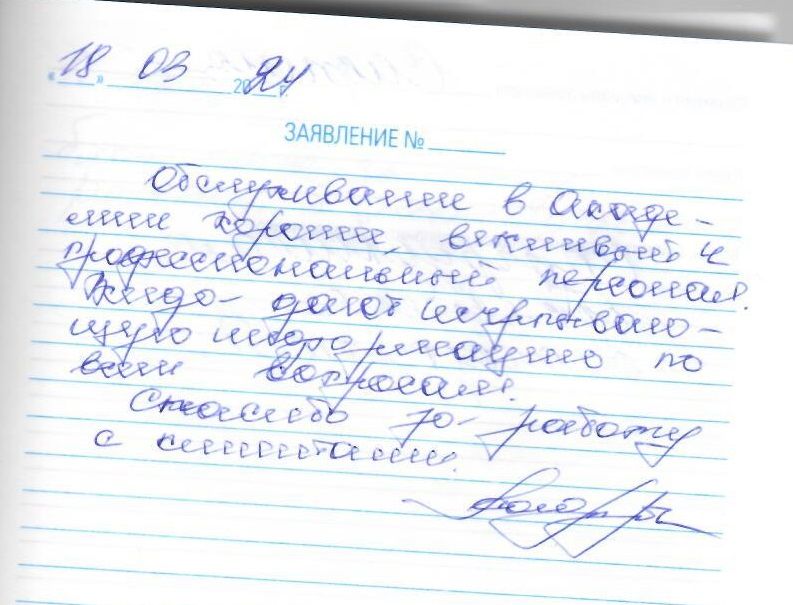 «18» 03 2024 г.
ЗАЯВЛЕНИЕ №
Обслуживание в Акаде-
мии хорошее, вежливый и
профессиональный персонал.
дают исчерпываю-
щую информацию по
всем вопросам.
Спасибо за работу
с клиентами.